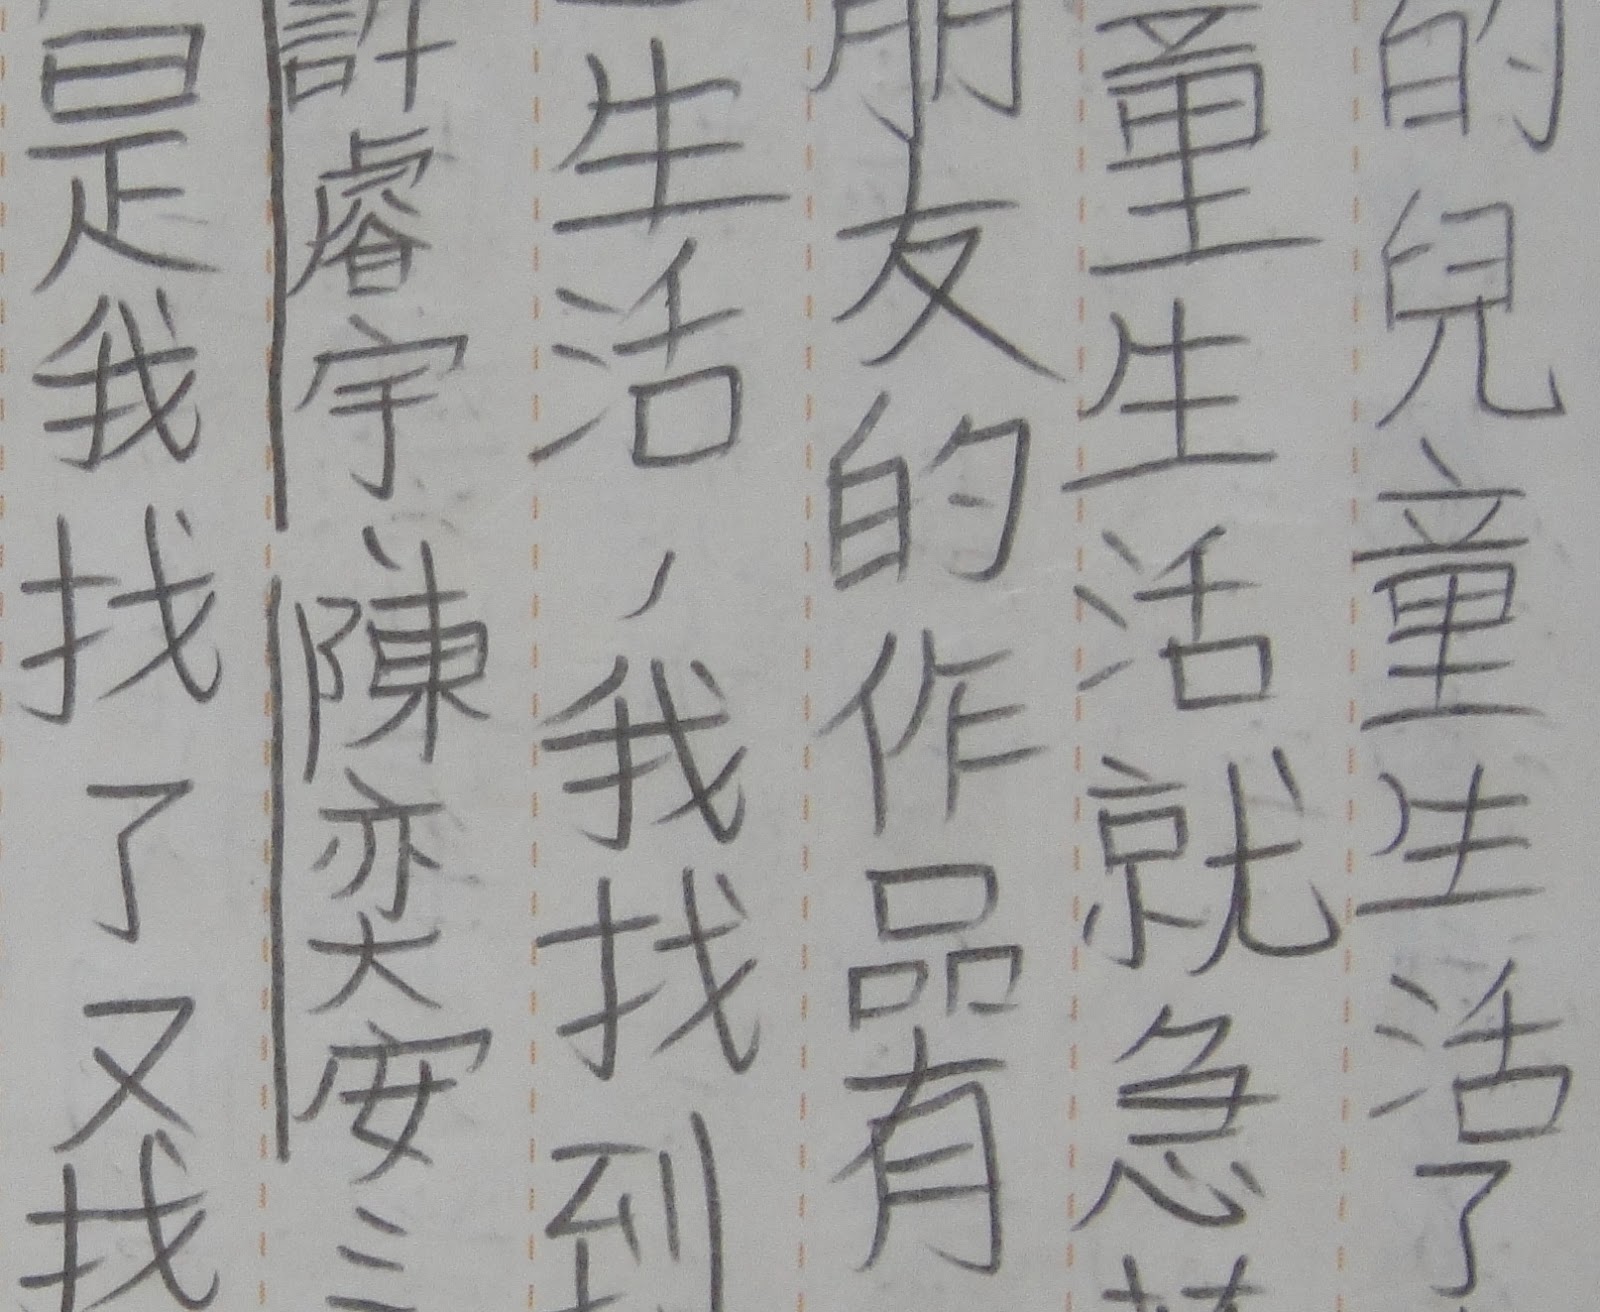 的兒童生活了
童生活就急
朋友的作品有
生活,我找到
許睿宇、陳奕安三
是我找了又找